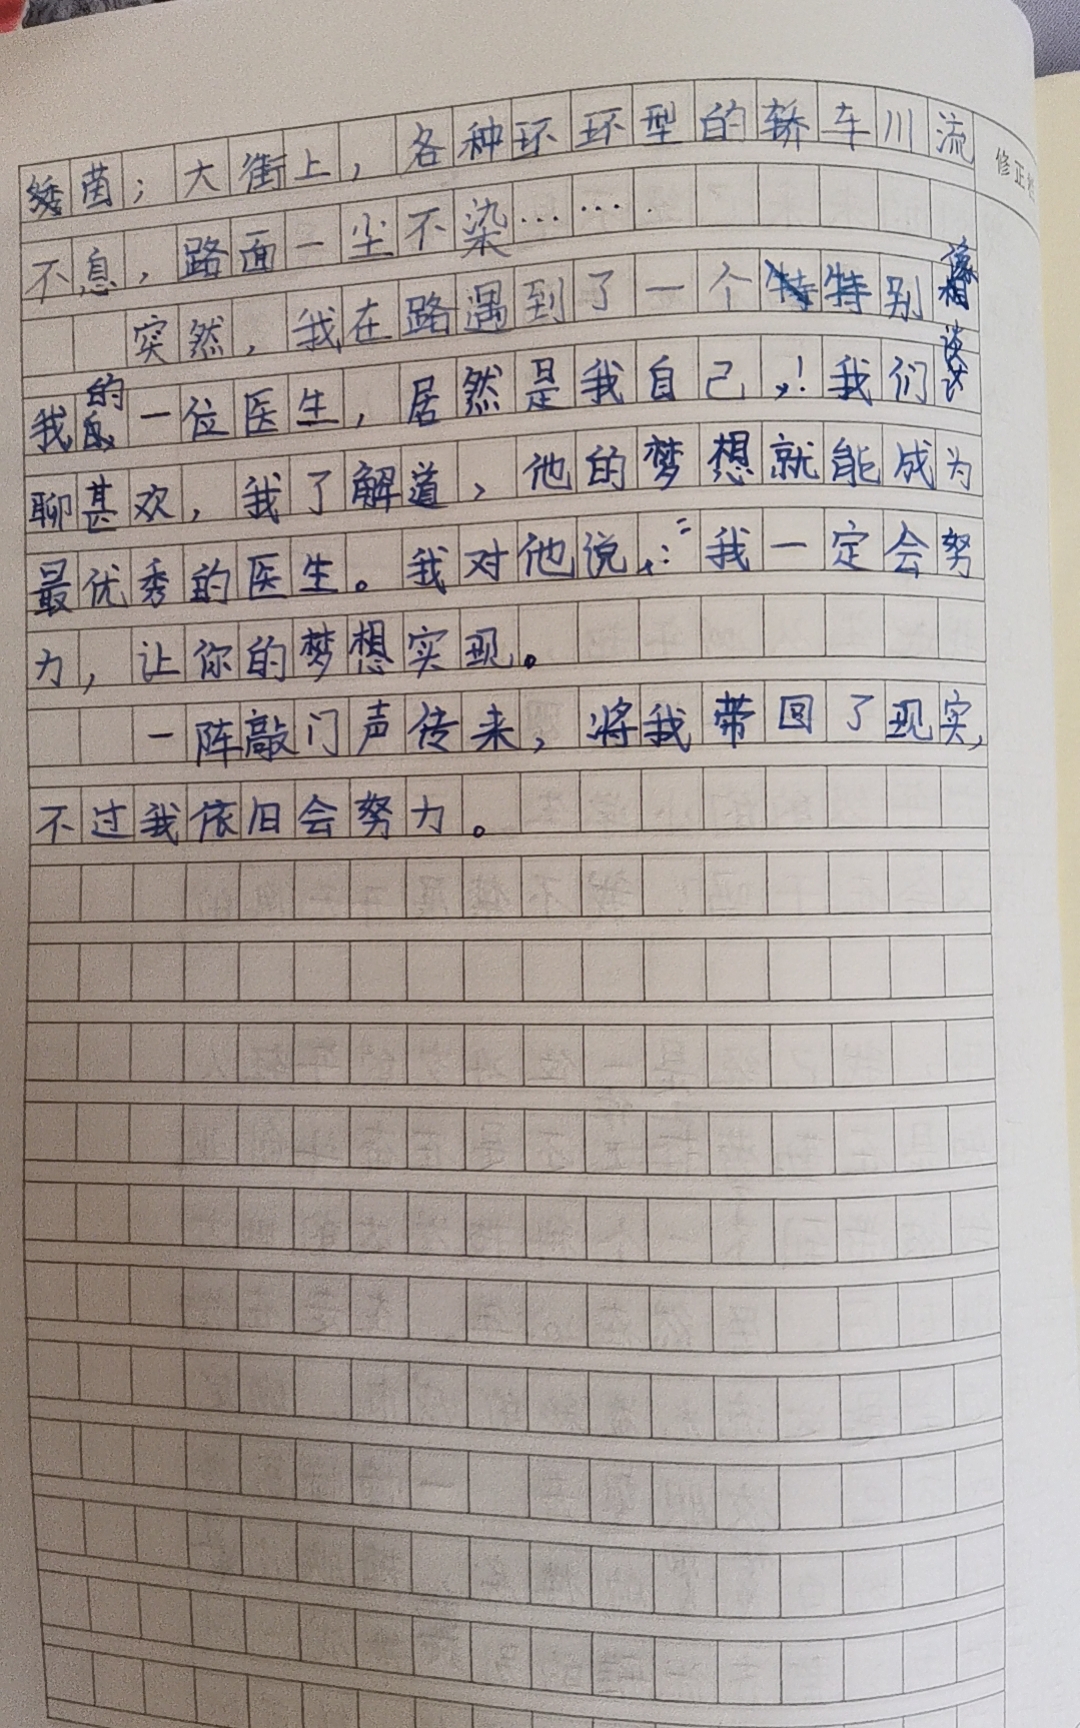 绣茵；大街上，各种环环型的轿车川流
不息，路面一尘不染……
突然，我在路遇到了一个特特别像
我的一位医生，居然是我自己！我们谈
聊甚欢，我了解道，他的梦想就能成为
最优秀的医生。我对他说：“我一定会努
力，让你的梦想实现。
一阵敲门声传来，将我带回了现实，
不过我依旧会努力。
修正